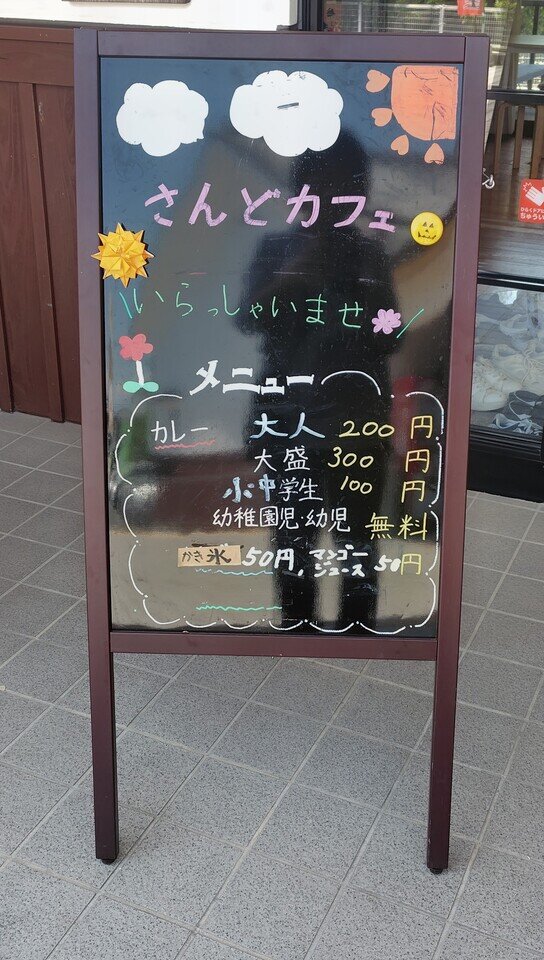 さんどカフェ
\いらっしゃいませ/
メニュー
カレー 大人 200 円
大盛 300 円
小中学生 100 円
幼稚園児・幼児 無料
かき氷 50円、マンゴージュース 50円
ひらくドアに
ちゅうい